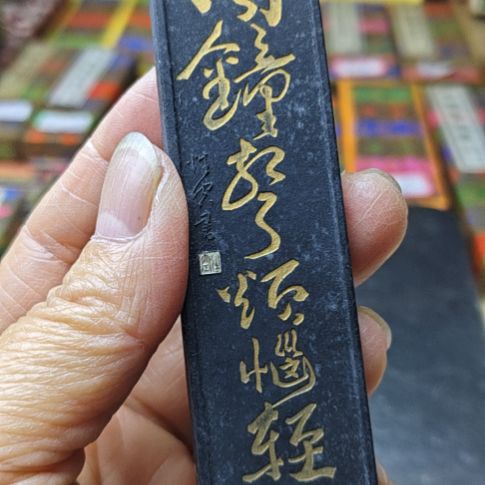 聞鐘聲煩惱輕